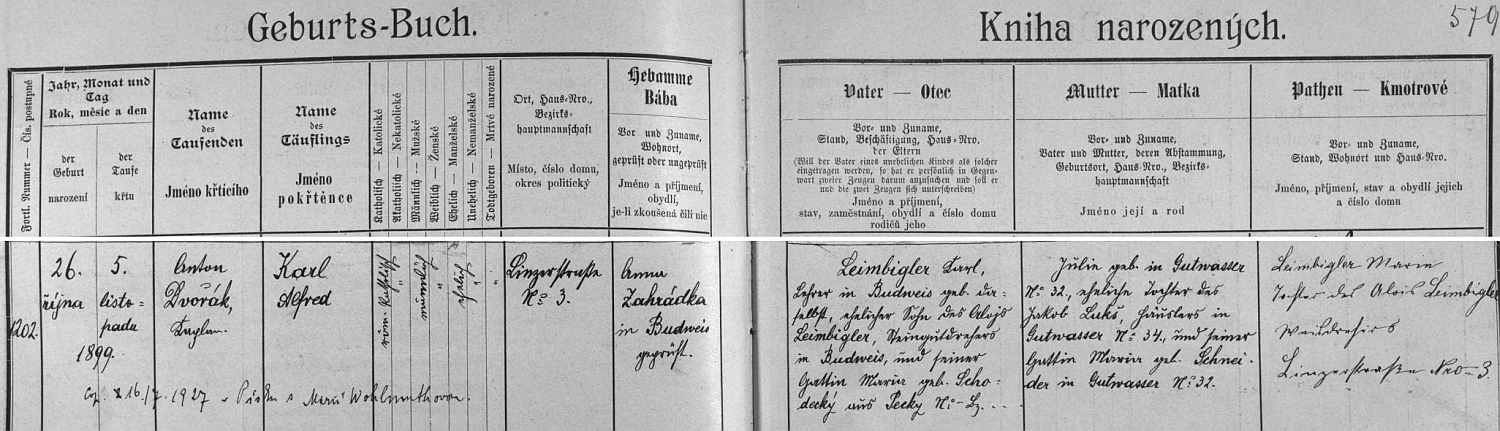 Geburts-Buch.
Kniha narozených.
579
Fortl. Nummer — Čís. postupné
Jahr, Monat und
Tag
Rok, měsíc a den
der
Geburt
narození
der
Taufe
křtu
Name
des
Taufenden
Jméno křtícího
Name
des
Täuflings
Jméno
pokřtěnce
Katholisch — Katolické
Akatholisch — Nekatolické
Männlich — Mužské
Weiblich — Ženské
Ehelich — Manželské
Unehelich — Nemanželské
Todtgeboren — Mrtvé narozené
Ort, Haus-Nro.,
Bezirks-
hauptmannschaft
Místo, číslo domu,
okres politický
Hebamme
Bába
Vor und Zuname,
Wohnort,
geprüft oder ungeprüft
Jméno a příjmení,
obydlí,
je-li zkoušená čili nic
Vater — Otec
Vor- und Zuname,
Stand, Beschäftigung, Haus-Nro.
der Eltern
(Will der Vater eines unehelichen Kindes als solcher
eingetragen werden, so hat er persönlich in Gegen-
wart zweier Zeugen darum anzusuchen und soll er
und die zwei Zeugen sich unterschreiben)
Jméno a příjmení,
stav, zaměstnání, obydlí a číslo domu
rodičů jeho
Mutter — Matka
Vor- und Zuname,
Vater und Mutter, deren Abstammung,
Geburtsort, Haus-Nro., Bezirks-
hauptmannschaft
Jméno její a rod
Pathen — Kmotrové
Vor- und Zuname,
Stand, Wohnort und Haus-Nro.
Jméno, příjmení, stav a obydlí jejich
a číslo domu
1202.
26.
října
5.
listo-
padu
1899.
Anton
Dvořák,
Kaplan.
Karl
Alfred
röm. katholisch
"
männlich
"
ehelich
"
"
Linzerstraße
No 3.
Anna
Zahrádka
in Budweis
geprüft.
Leimbigler Karl,
Lehrer in Budweis geb. da-
selbst, ehelicher Sohn des Alojs
Leimbigler, Steingutdrehers
in Budweis, und seiner
Gattin Maria geb. Scho-
decký aus Pecky No
Julie geb. in Gutwasser
No 32., eheliche Tochter des
Jakob Luks, Häuslers in
Gutwasser No 34., und seiner
Gattin Maria geb. Schnei-
der in Gutwasser No 32.
Leimbigler Marie
Tochter des Alois Leimbigler
Linzerstraße Nro 3.
16/7. 1927 v Písku s Marií Wohlmuthovou.